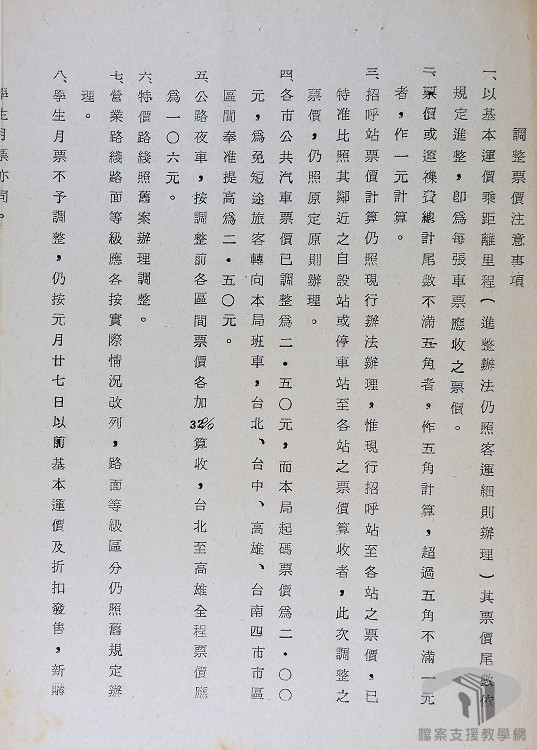 調整票價注意事項
一、以基本運價乘距離里程(進整辦法仍照客運細則辦理)其票價尾數依
規定進整,卽爲每張車票應收之票價。
二、票價或邏襍費總計尾數不滿五角者,作五角計算,超過五角不滿一元
者,作一元計算。
三、招呼站票價計算仍照現行辦法辦理,惟現行招呼站至各站之票價,已
特准比照其鄰近之自設站或停車站至各站之票價算收者,此次調整之
票價,仍照原定原則辦理。
四、各市公共汽車票價已調整爲二・五〇元,而本局起碼票價爲二・〇〇
元,爲免短途旅客轉向本局班車,台北、台中、高雄、台南四市市區
區間奉准提高爲二・五〇元。
五、公路夜車,按調整前各區間票價各加32%算收,台北至高雄全程票價應
爲一〇六元。
六、特價路綫照舊案辦理調整。
七、營業路綫路面等級應各按實際情况改列,路面等級區分仍照舊規定辦
理。
八、學生月票不予調整,仍按元月廿七日以前基本運價及折扣發售,新購
學生月票亦同。
檔案支援教學網